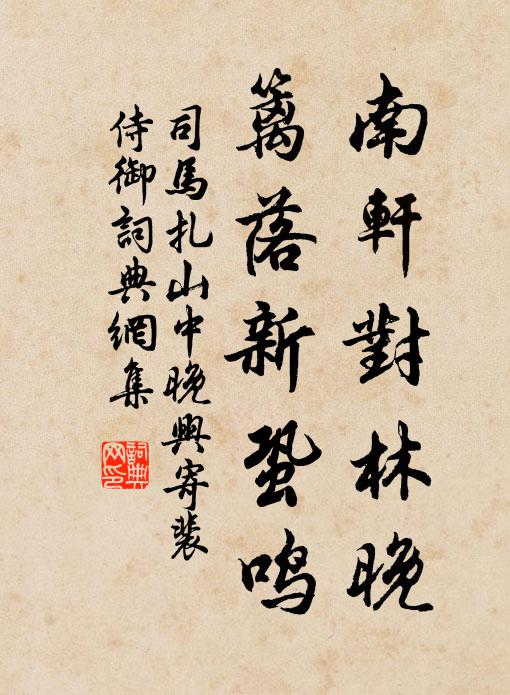 南軒對林晚
籬落新蛩鳴
司馬扎山中晚興寄裴
侍御詞典網集
詞典
网印